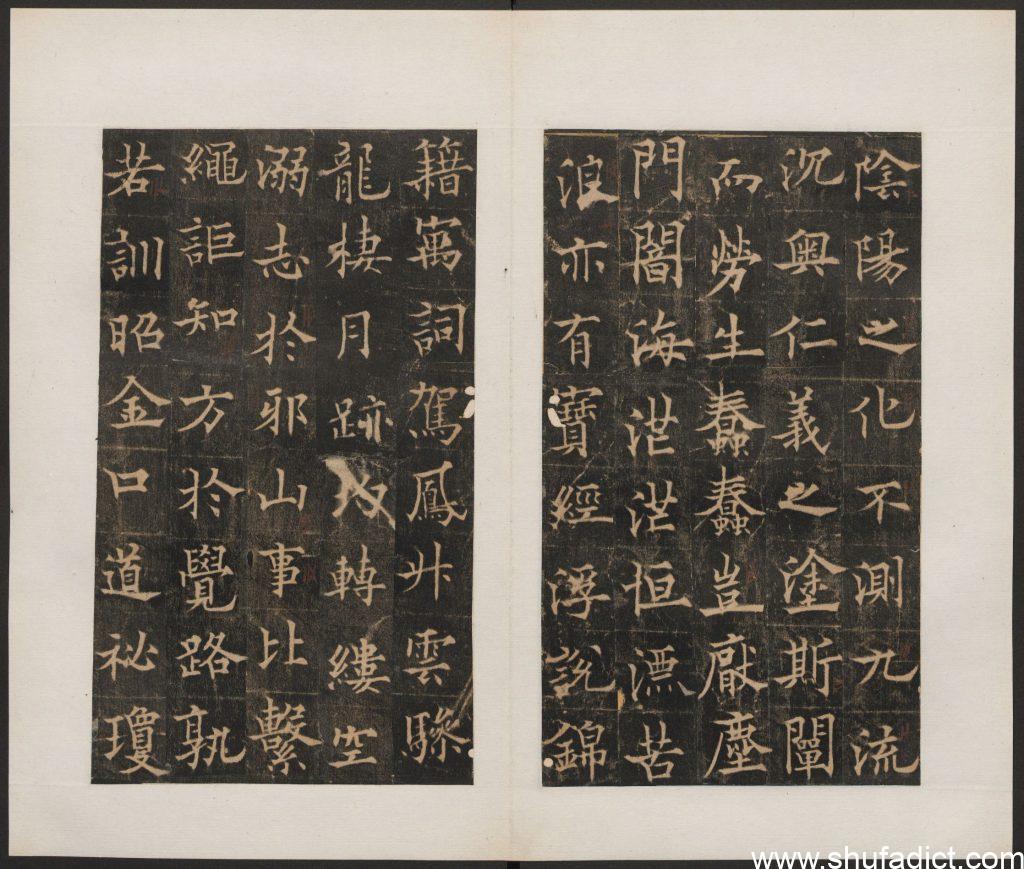 陰陽之化不測九流
沉奧仁義之塗斯闡
而勞生蠢蠢豈厭塵
門闇海茫茫恒漂苦
浪亦有寶經浮說錦
籍寓詞駕鳳升雲驂
龍棲月跡轉縷空
溺志於邪山事比繫
繩詎知方於覺路孰
若訓昭金口道祕瓊
www.shufadict.com